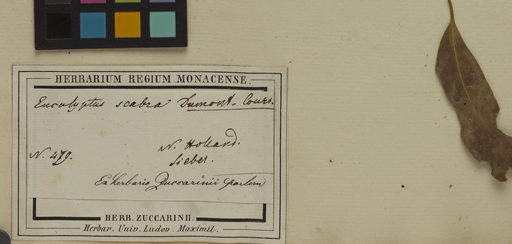 HERBARIUM REGIUM MONACENSE.
Eucalyptus scabra Dumont-Cours.
N. Holland.
N. 479. Sieber.
Ex herbario Zuccarinii partem
HERB. ZUCCARINII.
Herbar. Univ. Ludov. Maximil.